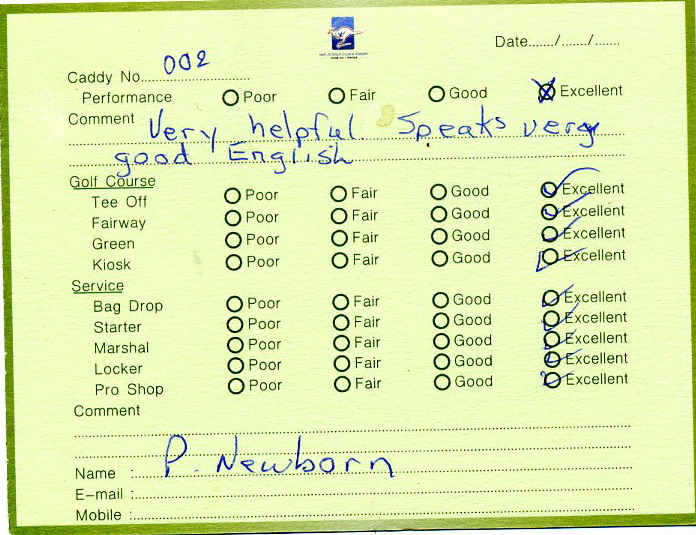 Date....../....../......
Caddy No. 002
Performance Poor Fair Good Excellent
Comment Very helpful. Speaks very
good English
Golf Course
Tee Off Poor Fair Good Excellent
Fairway Poor Fair Good Excellent
Green Poor Fair Good Excellent
Kiosk Poor Fair Good Excellent
Service
Bag Drop Poor Fair Good Excellent
Starter Poor Fair Good Excellent
Marshal Poor Fair Good Excellent
Locker Poor Fair Good Excellent
Pro Shop Poor Fair Good Excellent
Comment
Name : P. Newborn
E-mail :
Mobile :